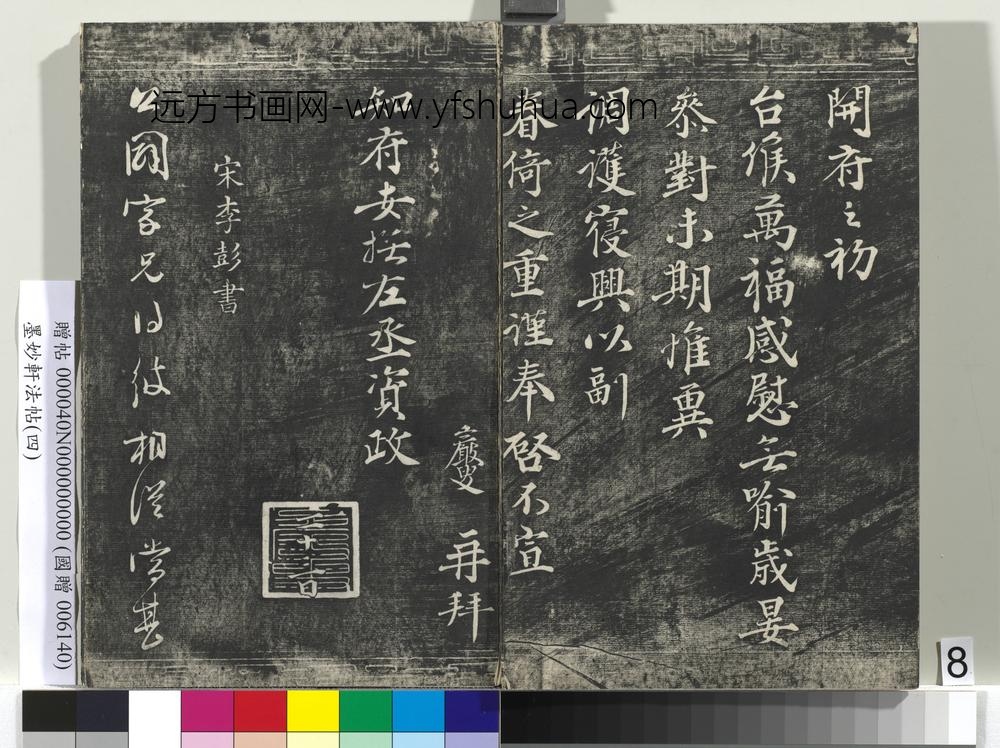 開府之初
台候萬福感慰無喻歲晏
參對未期惟冀
調護寢興以副
眷倚之重謹奉啓不宣
巖叟 再拜
知府安撫左丞資政
宋李彭書
國家兄得從相從當甚
远方书画网-www.yfshuhua.com
贈帖 000040N000000000 (國贈 006140)
墨妙軒法帖(四)
8